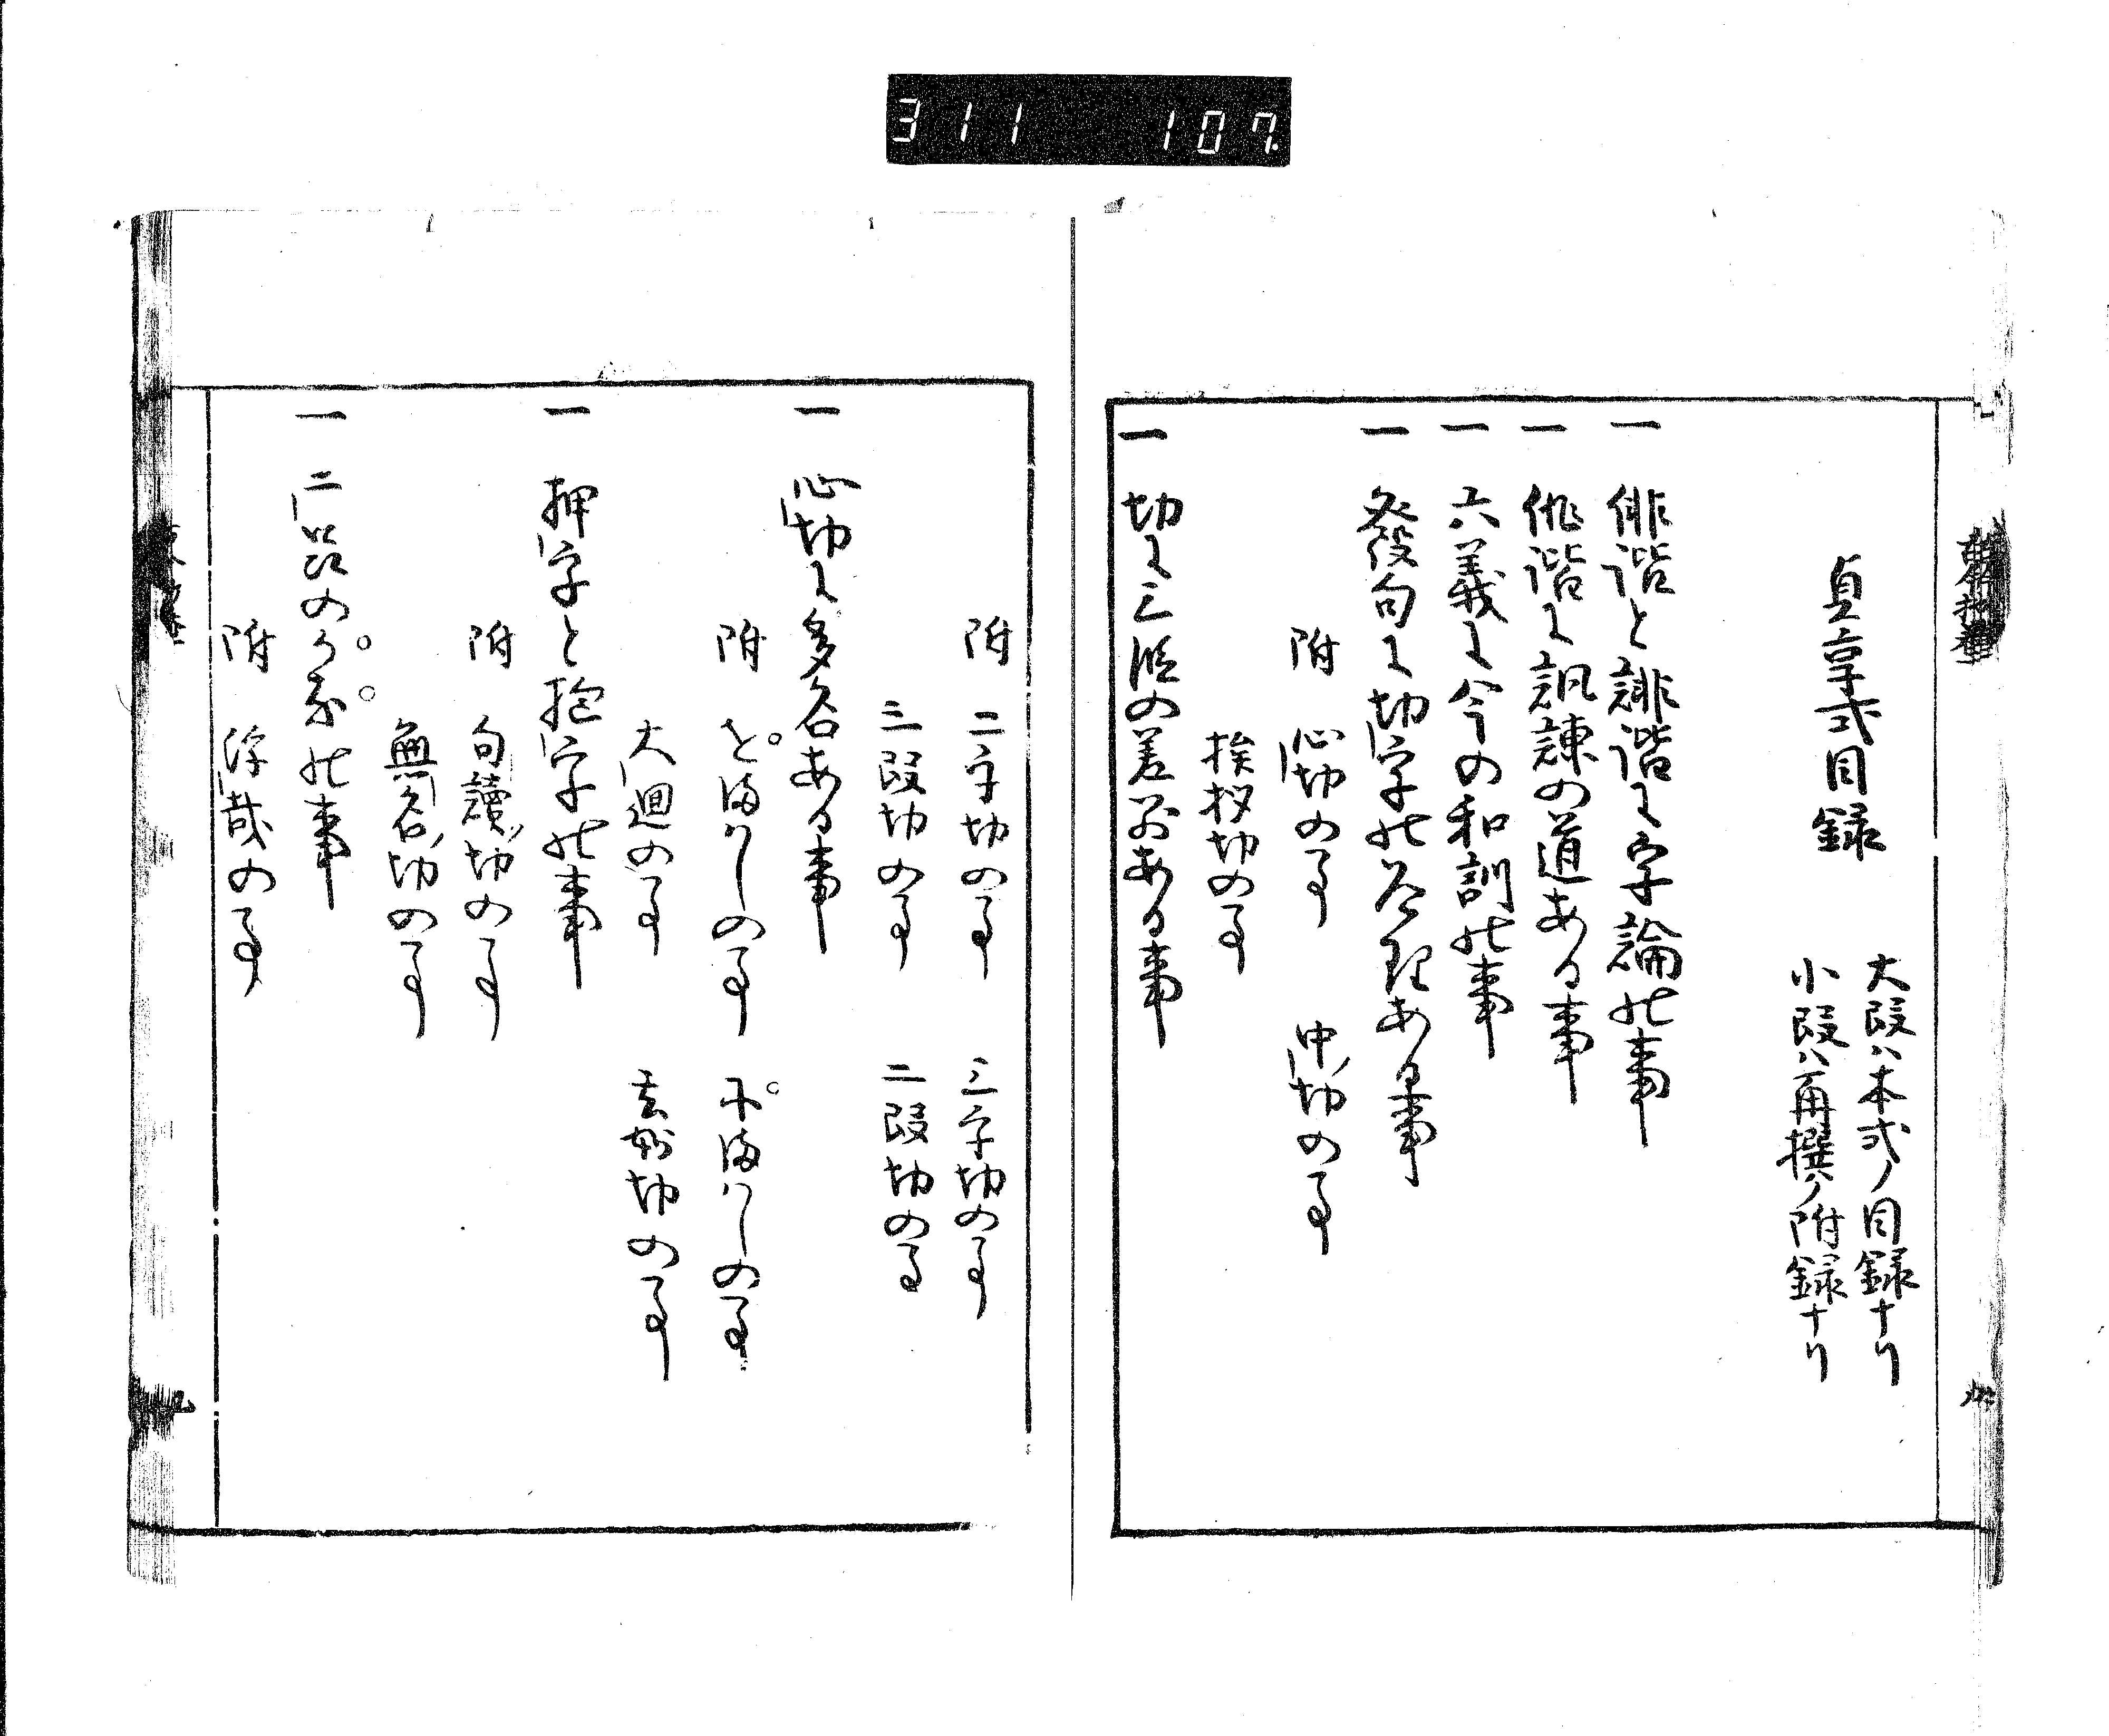 311 107.
貞享式目録
大段ハ本式ノ目録ナリ
小段ハ再撰ノ附録ナリ
一 俳諧と誹諧に字論の事
一 俳諧に諷諌の道ある事
一 六義に今の和訓の事
一 發句に切字の差別ある事
附 心切の事 中切の事
挨拶切の事
一 切に三段の差別ある事
附 二字切の事 三字切の事
三段切の事 二段切の事
一 心切に多名ある事
附 をまはしの事 にまはしの事
大廻の事 玄妙切の事
一 押字と抱字の事
附 句讀切の事
無名切の事
一 二品のかなの事
附 浮哉の事